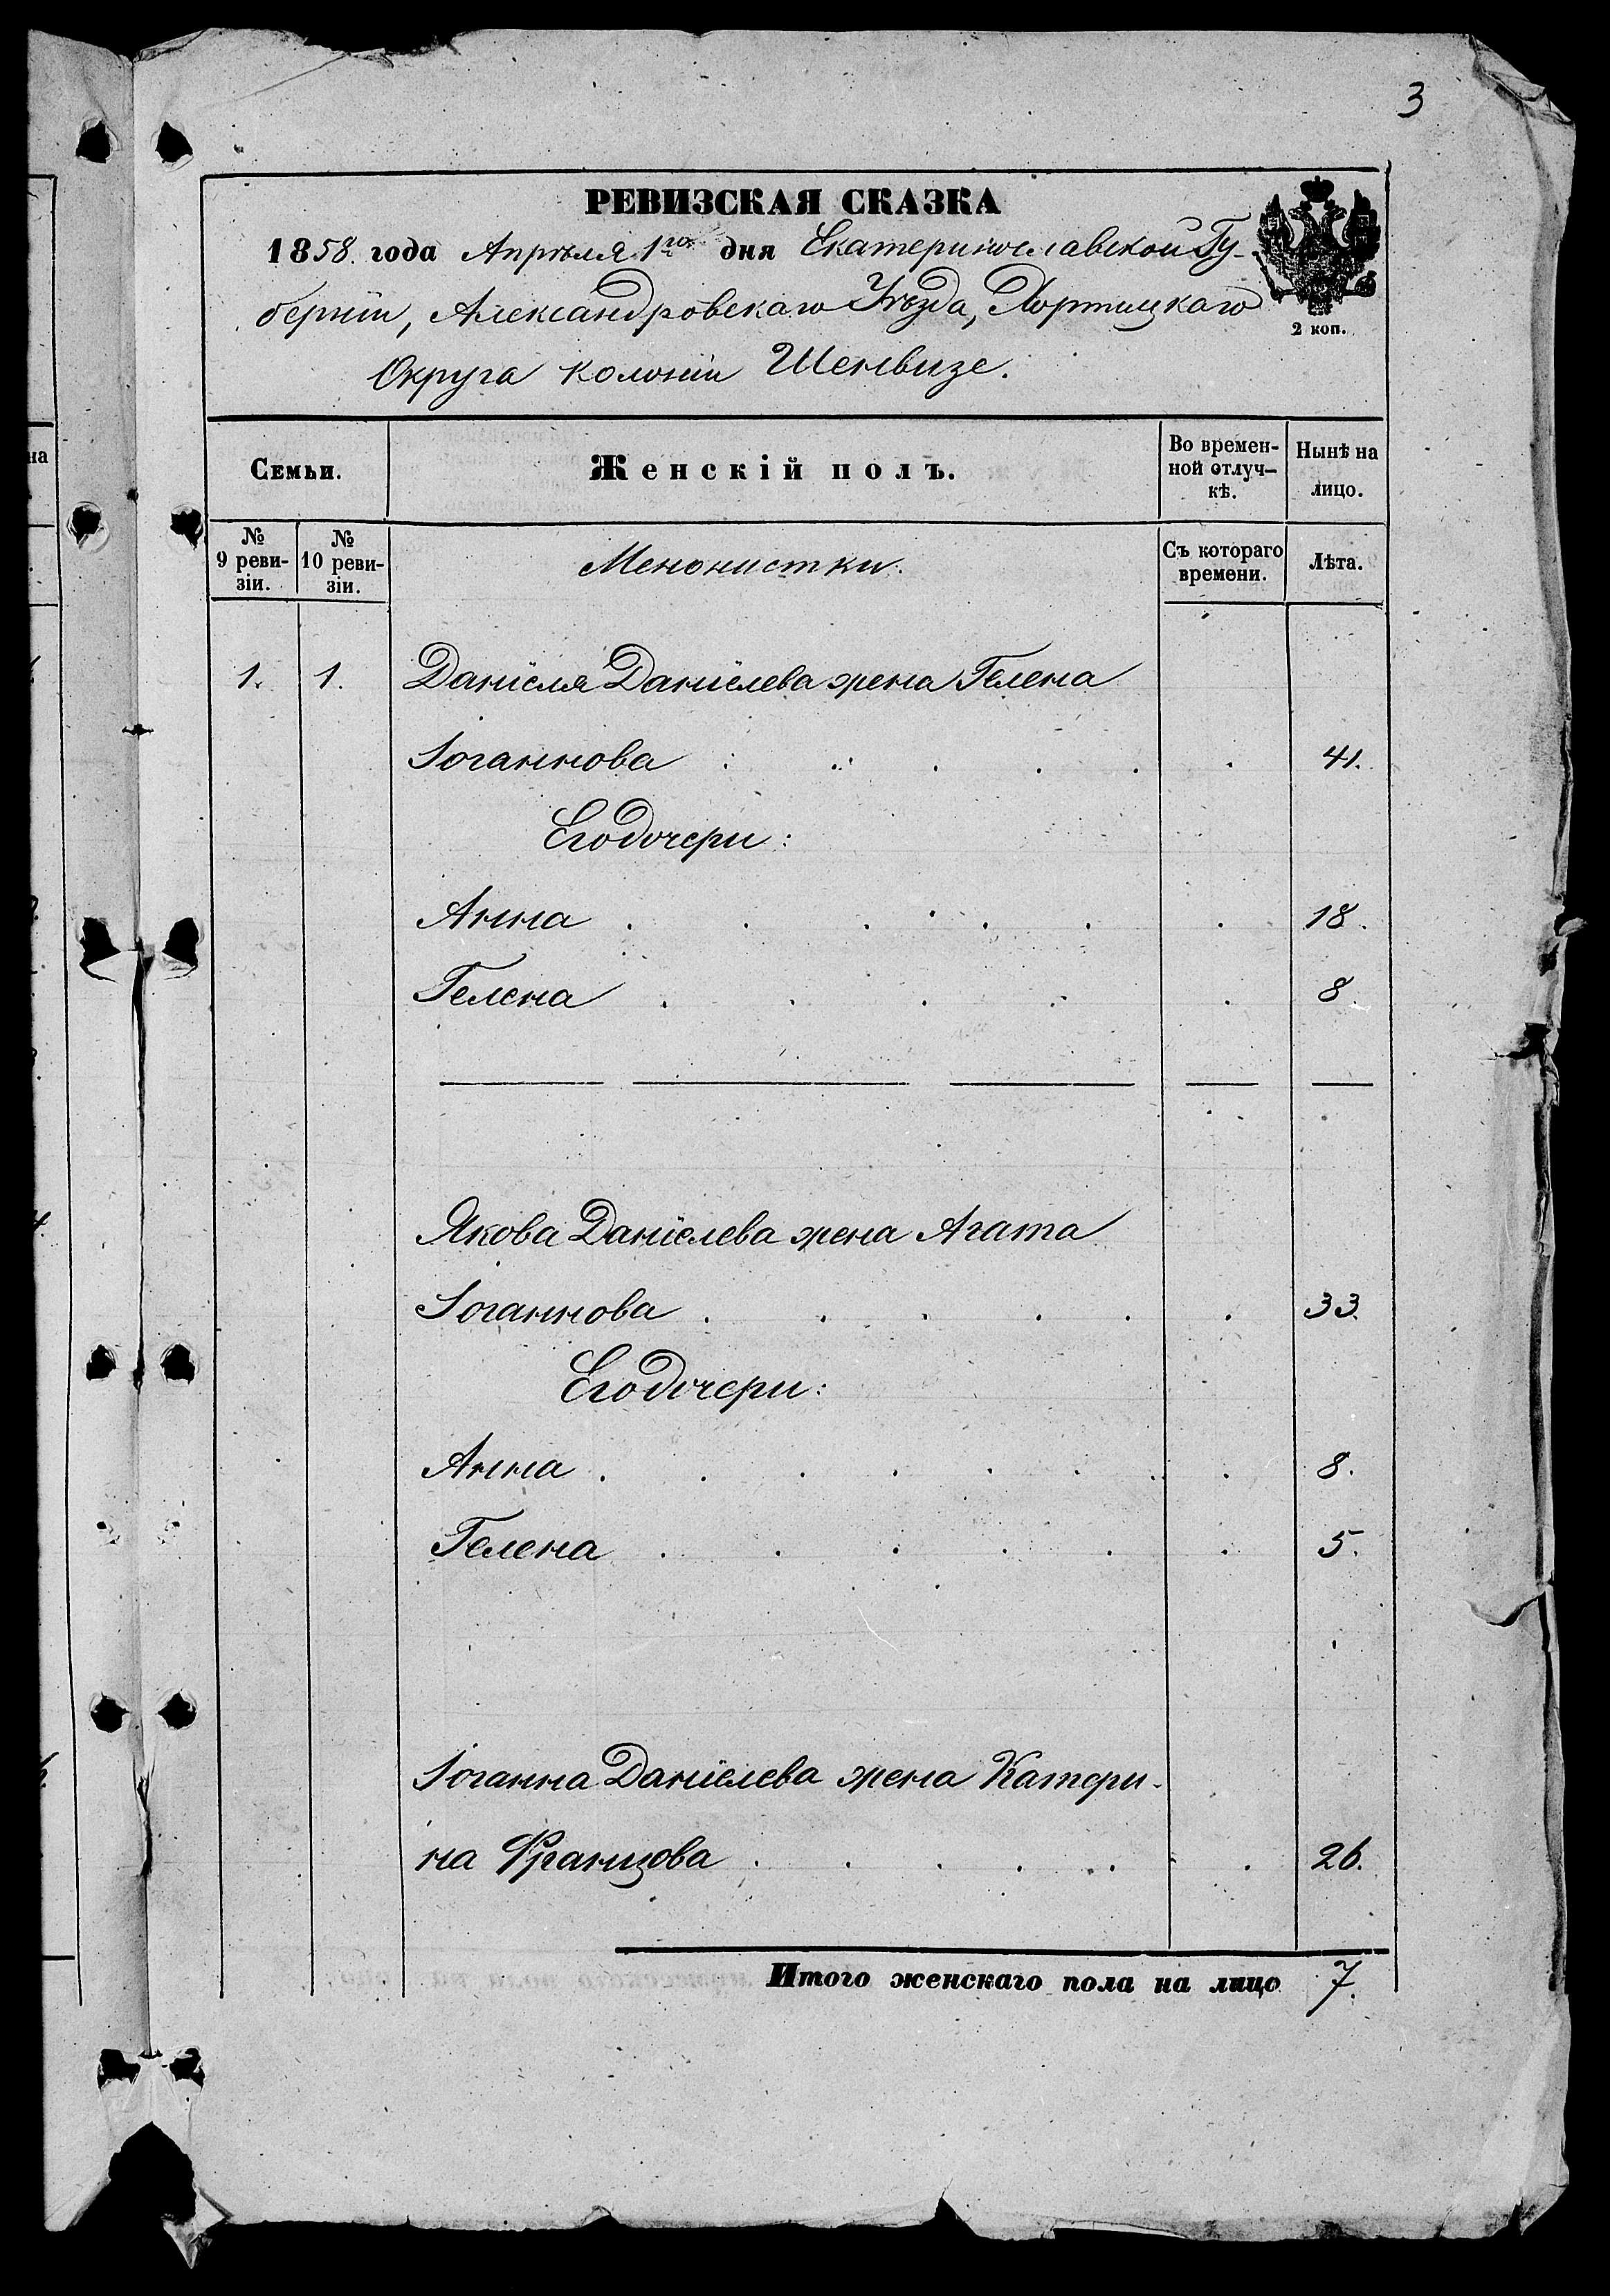 3
РЕВИЗСКАЯ СКАЗКА
1858. года Апрѣля 1го дня Екатеринославской Гу-
берніи, Александровскаго Уѣзда, Хортицкаго
2 коп.
Округа колоніи Шенвизе.
Семьи. Женскій полъ. Во времен-ной отлуч-кѣ. Нынѣ на лицо.
№ 9 реви-зіи. № 10 реви-зіи. Менонистки. Съ котораго времени. Лѣта.
1. 1. Даніеля Даніелева жена Гелена
Іоганнова 41.
Его дочери:
Анна 18.
Гелена 8
Якова Даніелева жена Агата
Іоганнова 33.
Его дочери:
Анна 8.
Гелена 5.
Іоганна Даніелева жена Катери-
на Францова 26.
Итого женскаго пола на лицо 7.
на